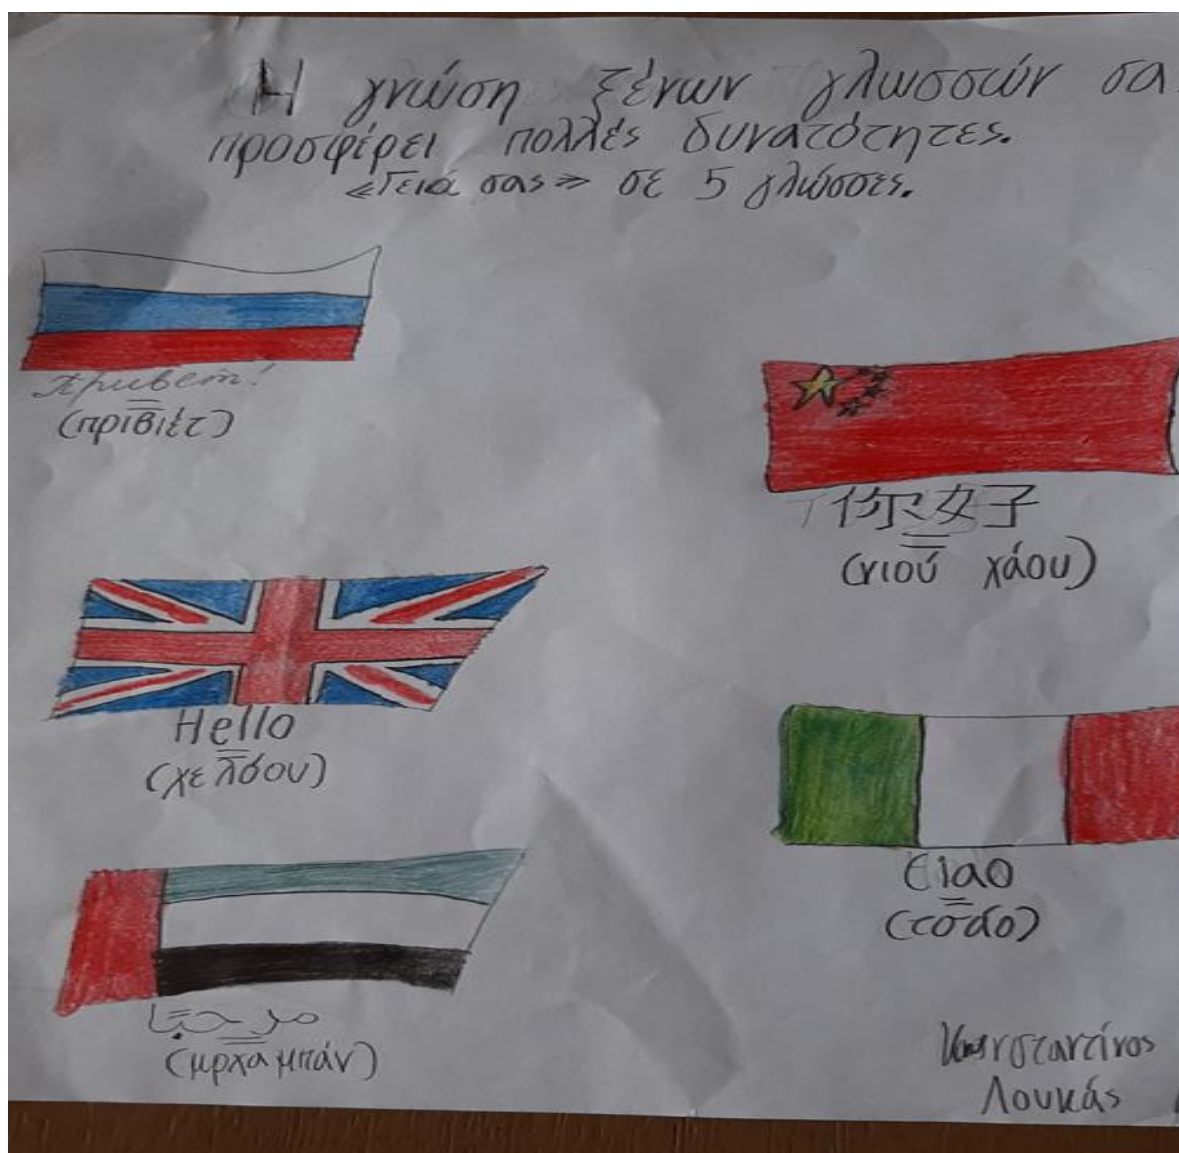 Η γνώση ξένων γλωσσών σα
προσφέρει πολλές δυνατότητες.
«Γειά σας» σε 5 γλώσσες.
привет!
=
(πριβιέτ)
你女子
=
(νιού χάου)
Hello
=
(χελόου)
Ciao
=
(τσάο)
مرحبًا
=
(μρχαμπάν)
Κωνσταντίνος
Λουκάς